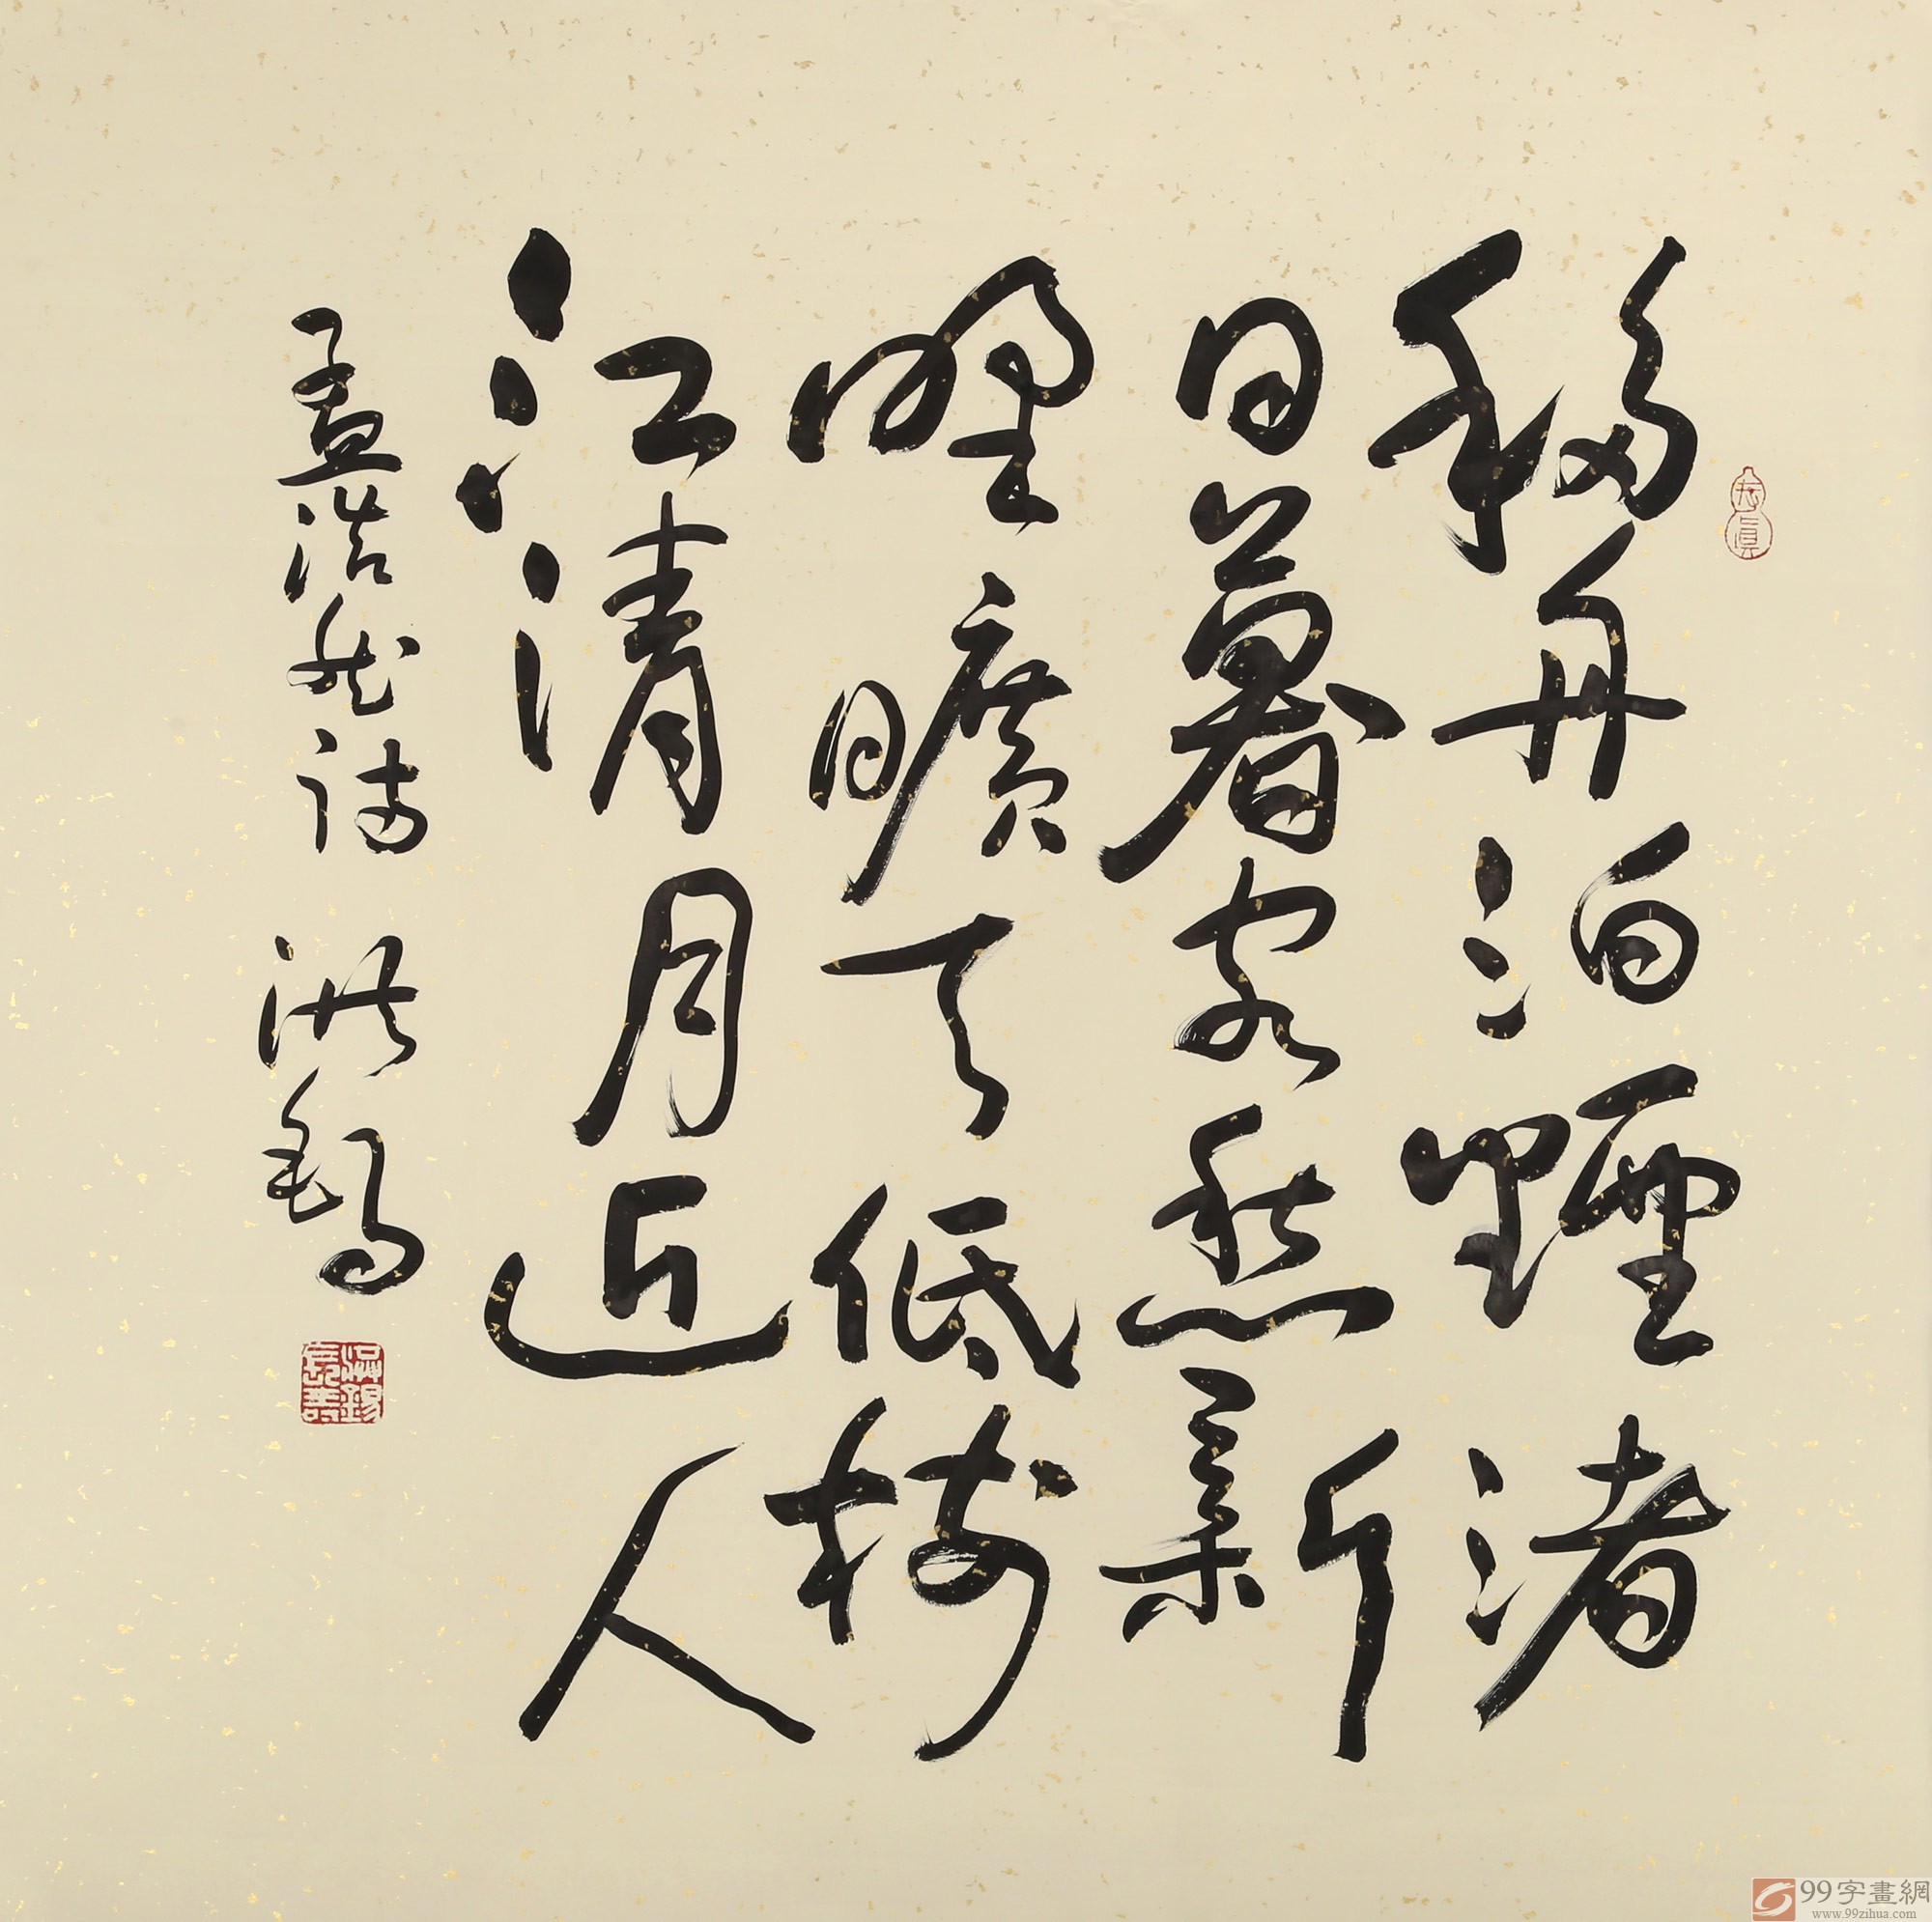 移舟泊煙渚
日暮客愁新
野曠天低樹
江清月近人
孟浩然詩 洪錫
99字畫網
www.99zihua.com